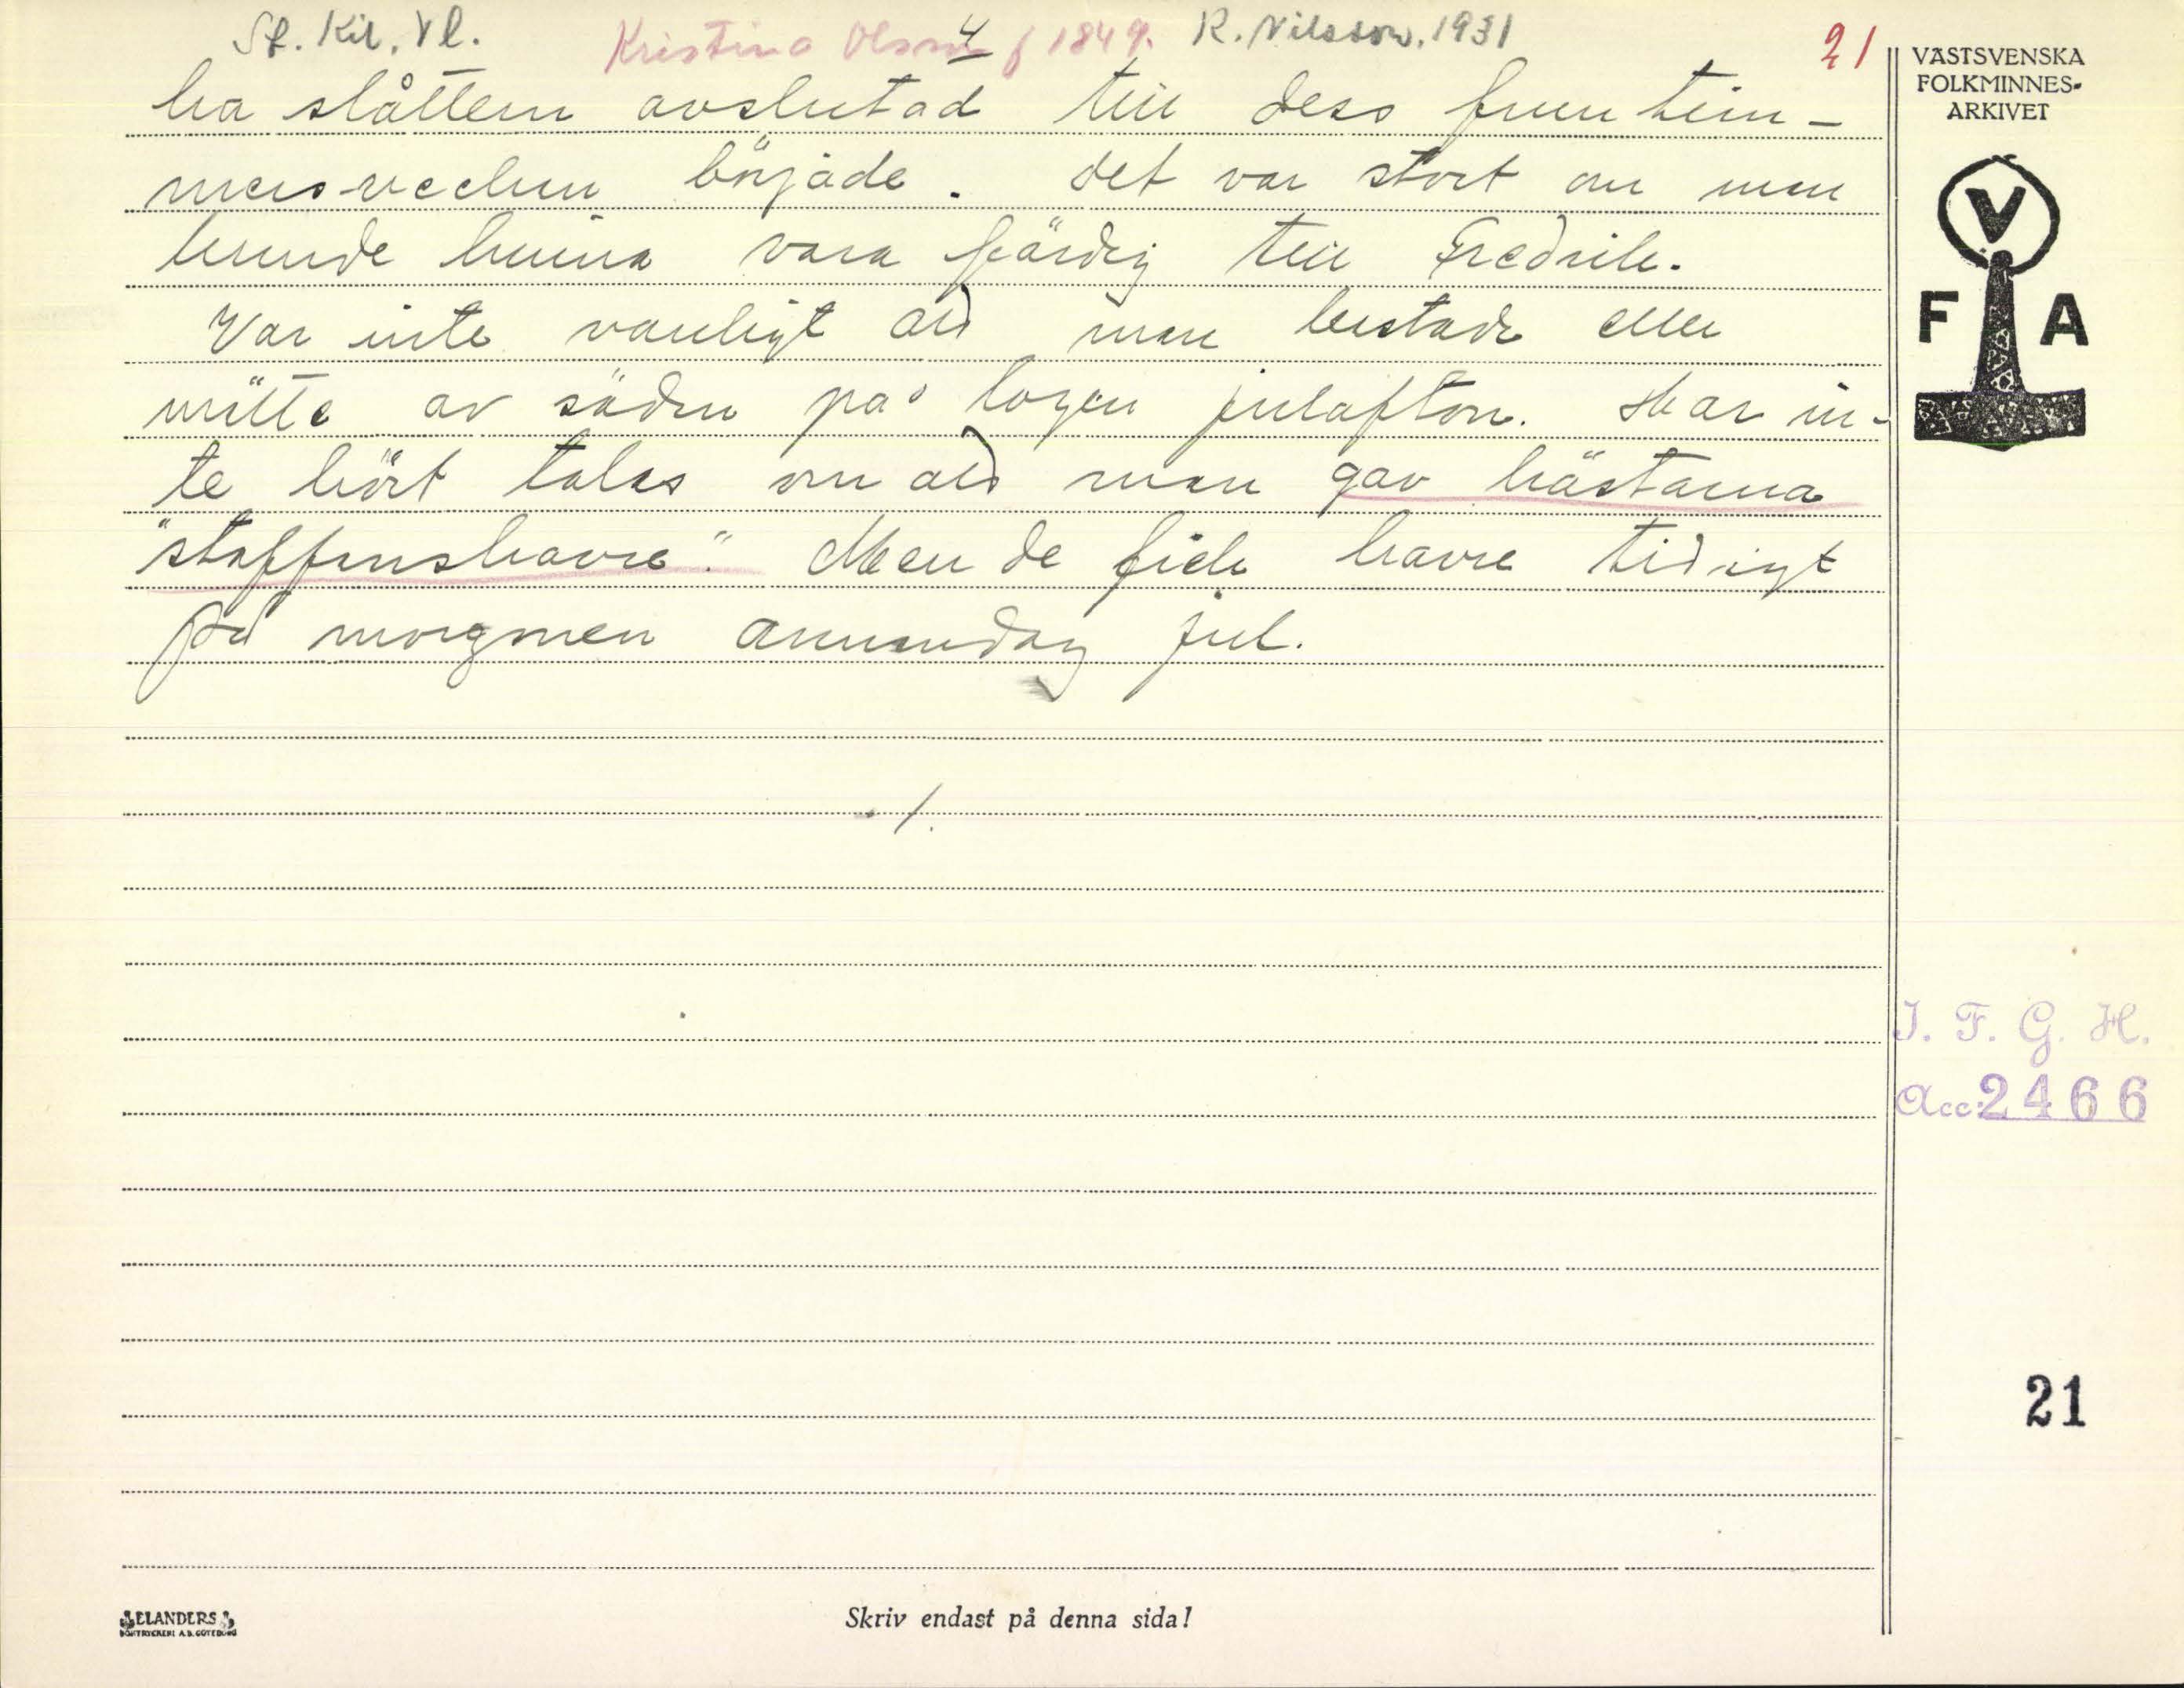 St. Kil. Vl. Kristina Olsson f 1849. R. Nilsson. 1931 21
4
ha slåttern avslutad till dess fruntim-
mersveckan började. Det var stort om man
kunde hinna vara färdig till Fredrik.
Var inte vanligt att man kastade eller
mätte av säden på logen julafton. Har in-
te hört talas om att man gav hästarna
"staffenshavre." Men de fick havre tidigt
på morgonen annandag jul.
./.
VÄSTSVENSKA
FOLKMINNES-
ARKIVET
V
F A
I. F. G. H.
Acc: 2466
21
ELANDERS
BOKTRYCKERI A.B. GÖTEBORG
Skriv endast på denna sida!